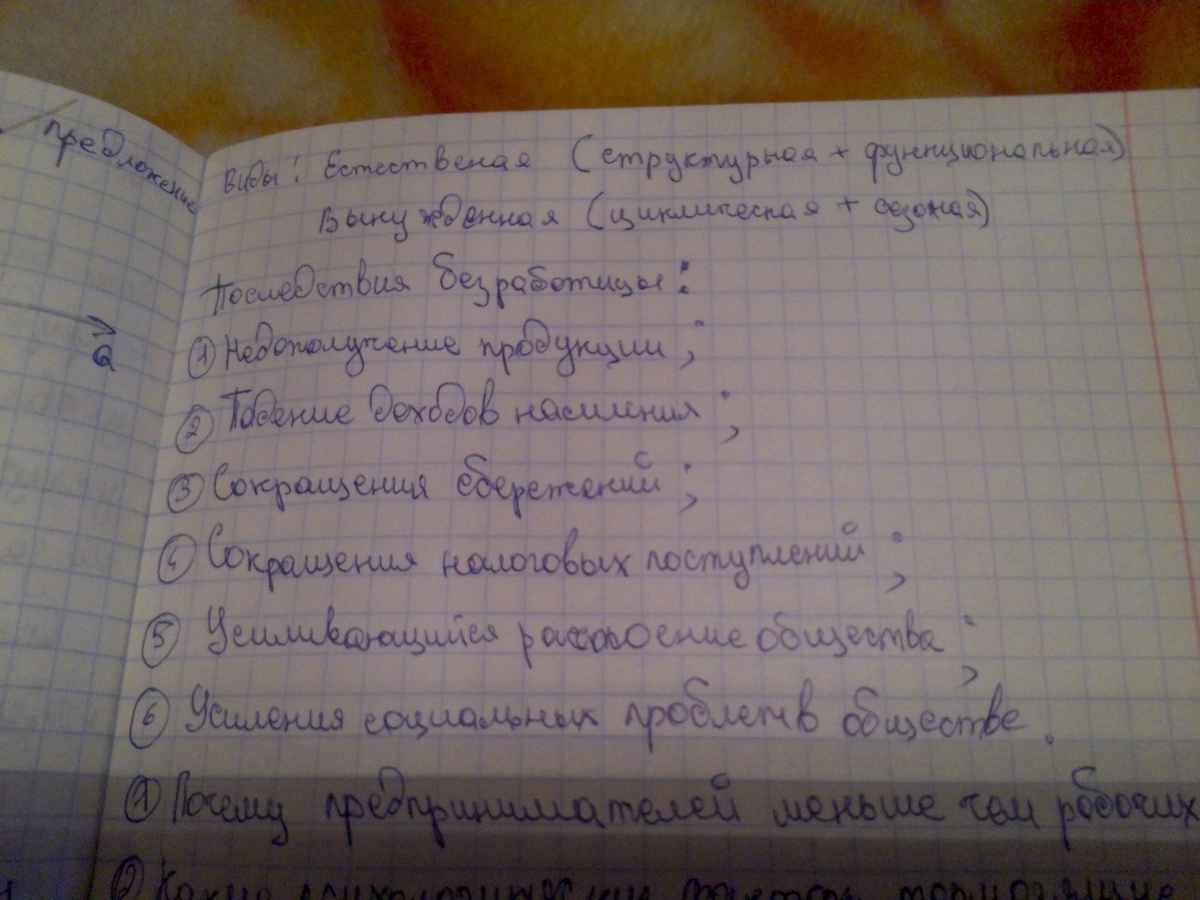 предложение
Q
Виды: Естественая (структурная + функциональная)
Вынужденная (циклическая + сезоная)
Последствия безработицы:
① Недополучение продукции;
② Падение доходов населения;
③ Сокращения сбережений;
④ Сокращения налоговых поступлений;
⑤ Усиливающийся расслоение общества;
⑥ Усиления социальных проблем в обществе.
① Почему предпринимателей меньше чем рабочих
② Какие психологические факторы